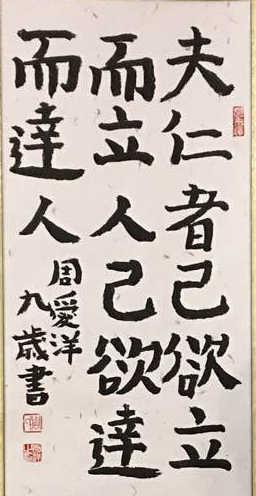 夫仁者己欲立
而立人己欲達
而達人
周愛洋
九歲書